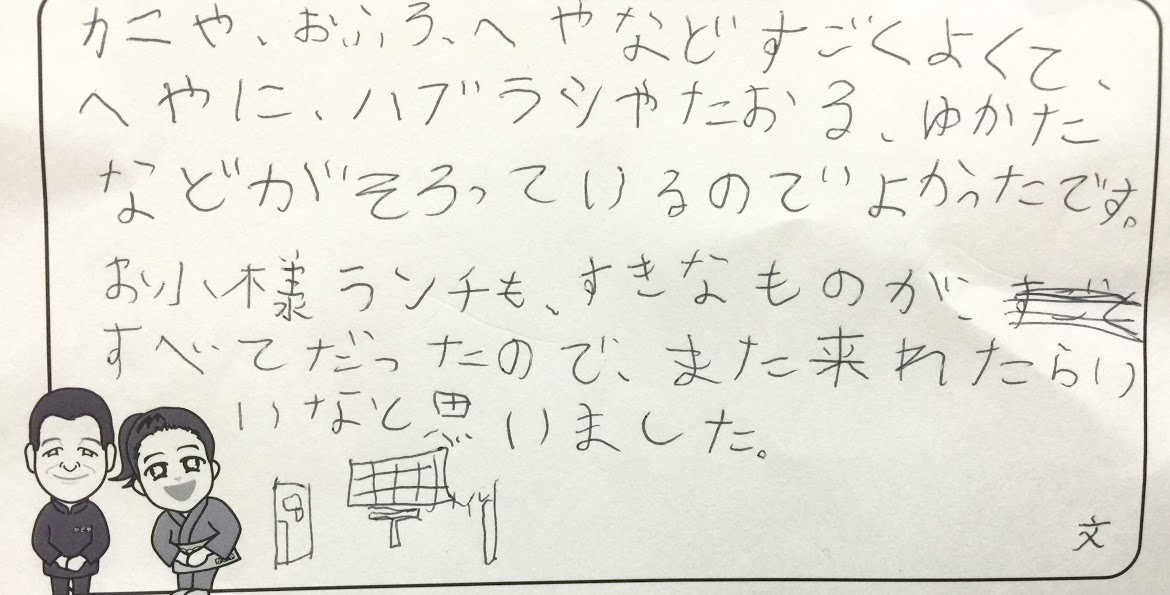 カニや、おふろ、へやなどすごくよくて、
へやに、ハブラシやたおる、ゆかた
などがそろっているのでよかったです。
お小様ランチも、すきなものがに
すべてだったので、また来れたらい
いなと思いました。
文